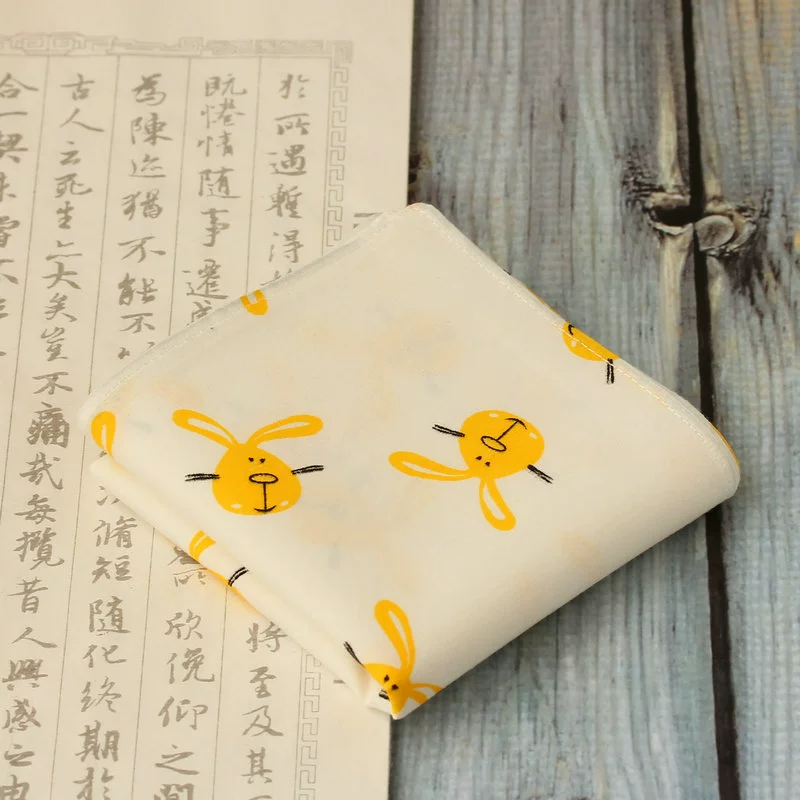 於所遇暫得 將至及其
既惓情隨事遷 欣俛仰之間
為陳迹猶不能不 脩短隨化終期於
古人云死生亦大矣豈不痛哉每攬昔人興感之由
合一契未嘗不